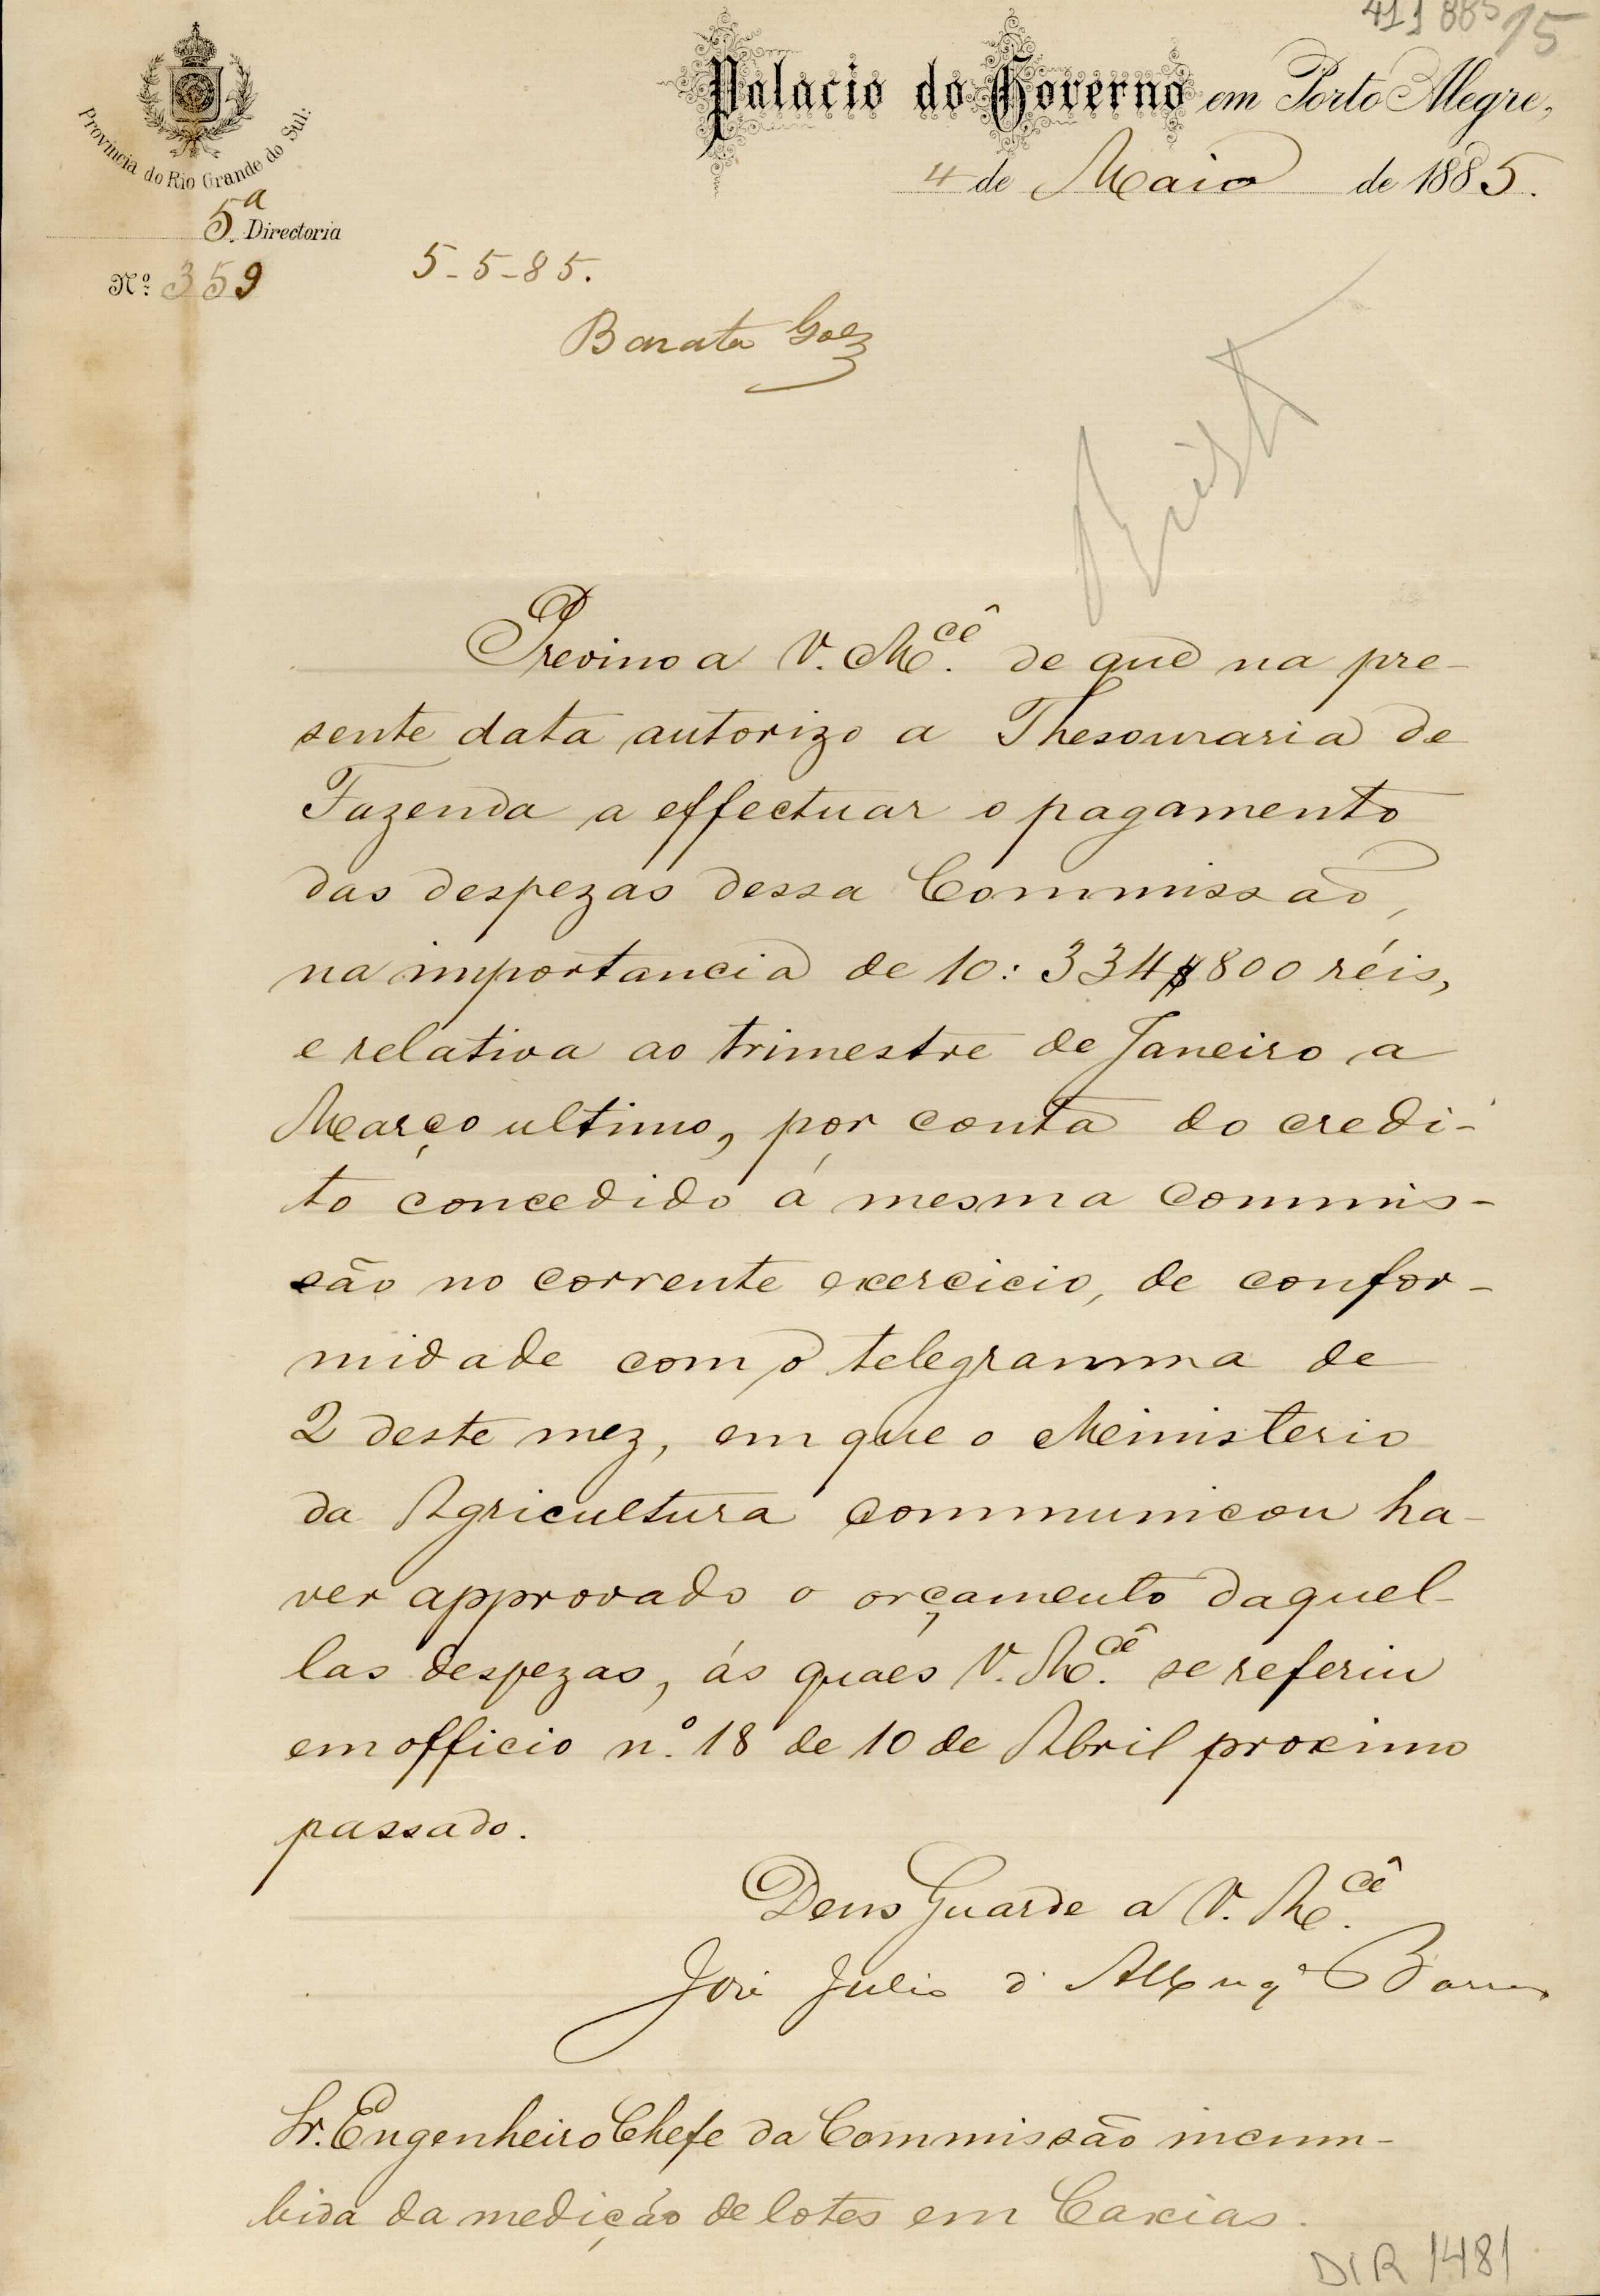 411885 15
Palacio do Governo em Porto Alegre,
4 de Maio de 1885.
Provincia do Rio Grande do Sul:
5ª Directoria
Nº 359
5-5-85.
Barata Góes
Previno a V. M.cê de que na pre-
sente data autorizo a Thesouraria de
Fazenda a effectuar o pagamento
das despezas dessa Commissão,
na importancia de 10:334$800 réis,
e relativa ao trimestre de Janeiro a
Março ultimo, por conta do credi-
to concedido á mesma commis-
são no corrente exercicio, de confor-
midade com o telegramma de
2 deste mez, em que o Ministerio
da Agricultura communicou ha-
ver approvado o orçamento daquel-
las despezas, ás quaes V. M.cê se referiu
em officio n.º 18 de 10 de Abril proximo
passado.
Deus Guarde a V. M.cê
José Julio d'Albuqe Barros
Sr. Engenheiro Chefe da Commissão incum-
bida da medição de lotes em Caxias.
DIR 1481